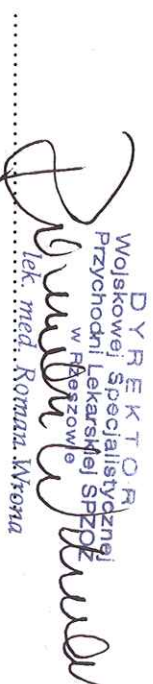 DYREKTOR
Wojskowej Specjalistycznej
Przychodni Lekarskiej SPZOZ
w Rzeszowie
lek. med. Roman Wrona